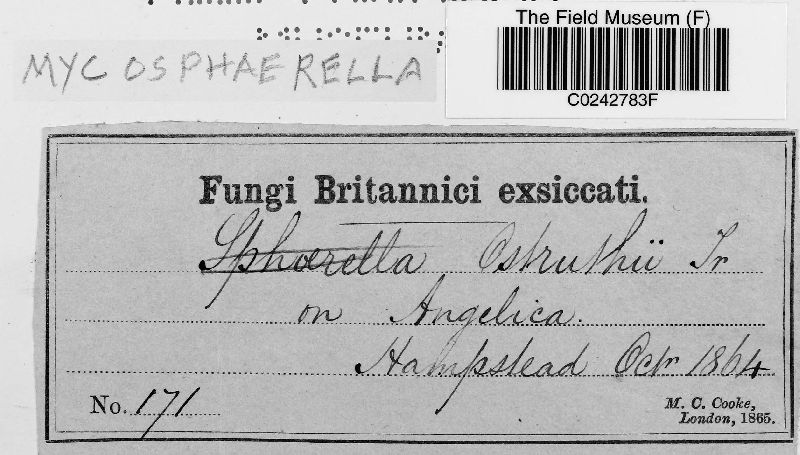 The Field Museum (F)
C0242783F
MYCOSPHAERELLA
Fungi Britannici exsiccati.
Sphaerella Ostruthii Fr
on Angelica.
Hampstead Octr 1864.
No. 171
M. C. Cooke,
London, 1865.